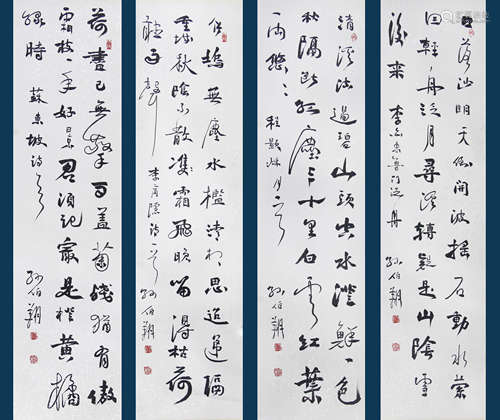 日落沙明天倒開波搖石動水縈
回輕舟泛月尋溪轉疑是山陰雪
後來 李白東魯門泛舟 孫伯翔
清溪流過碧山頭空水澄鮮一色
秋隔斷紅塵三十里白雲紅葉
兩悠悠 程顥秋月一首 孫伯翔
竹塢無塵水檻清相思迢遞隔
重城秋陰不散霜飛晚留得枯荷
聽雨聲 李商隱詩一首 孫伯翔
荷盡已無擎雨蓋菊殘猶有傲
霜枝一年好景君須記最是橙黃橘
綠時 蘇東坡詩一首 孫伯翔